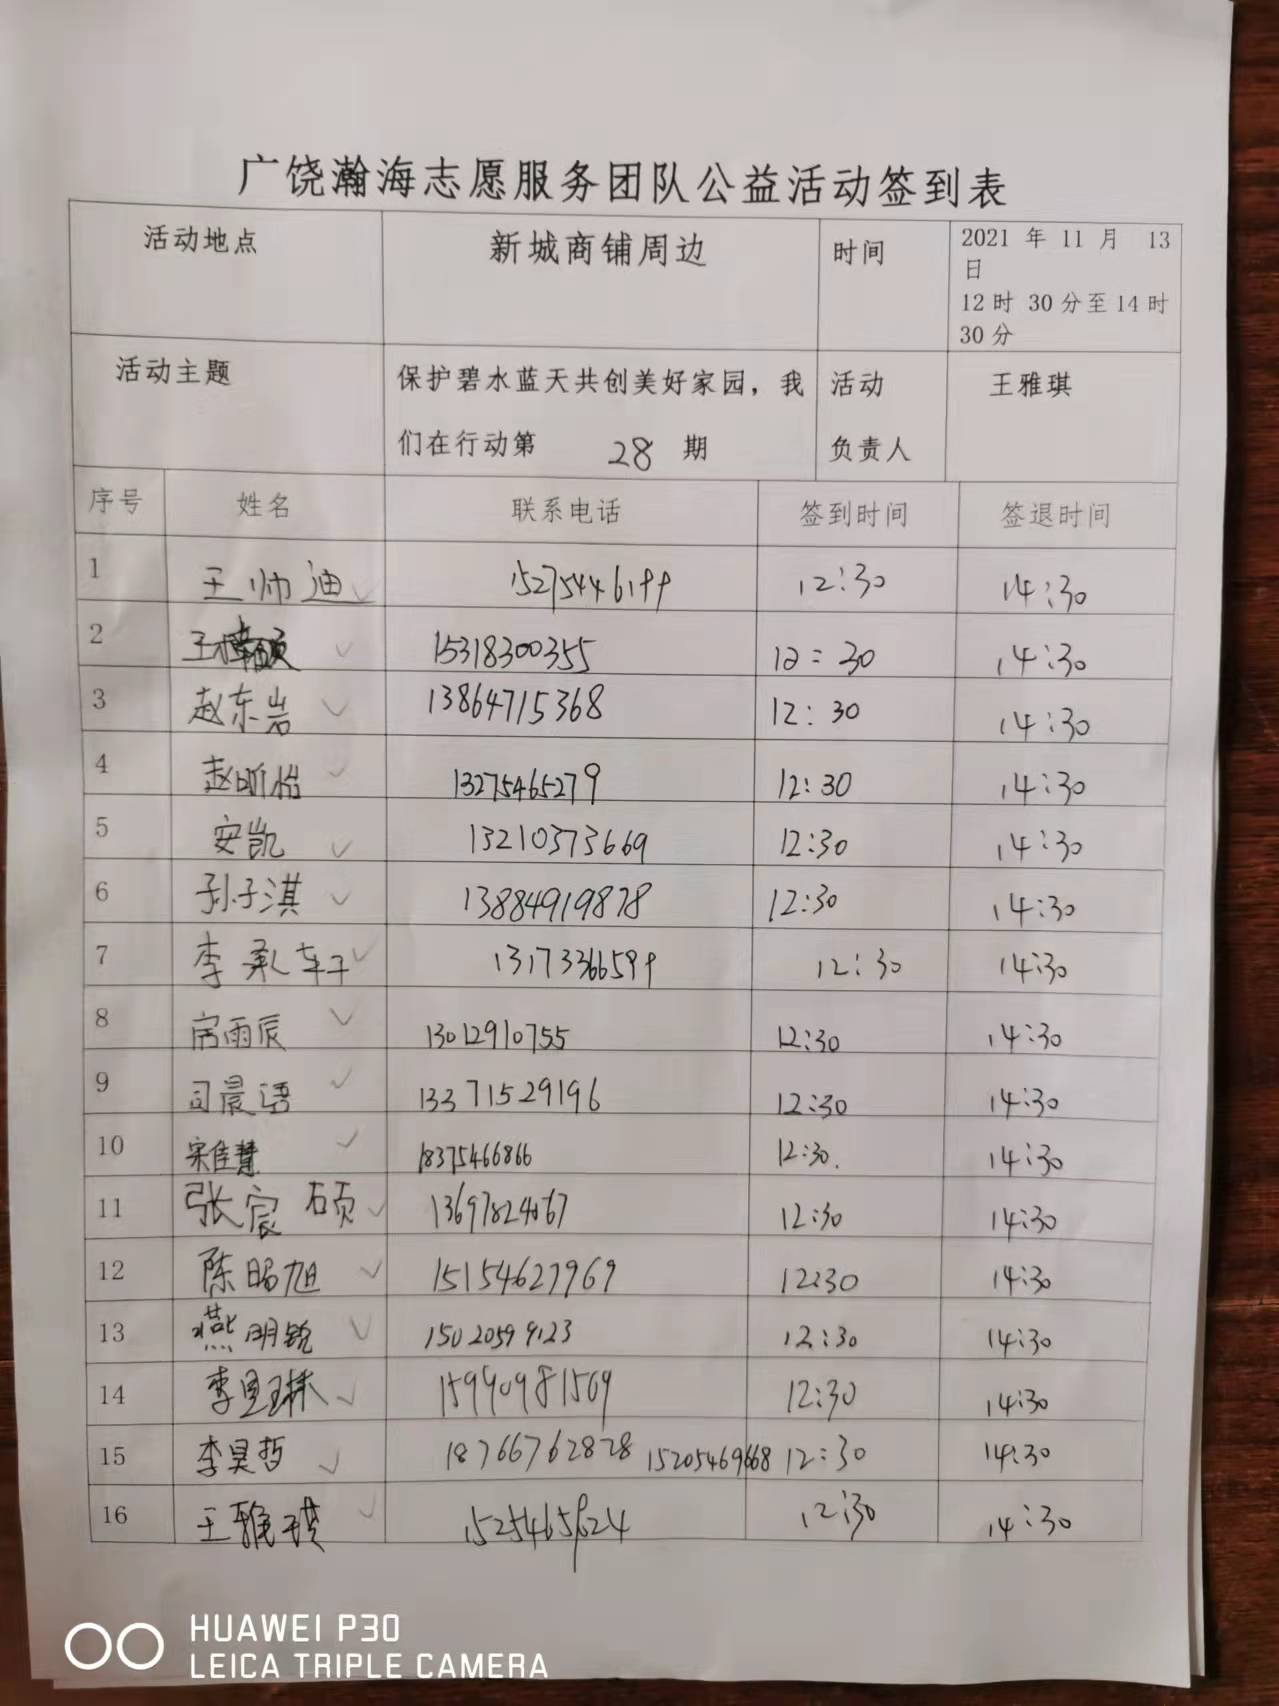 广饶瀚海志愿服务团队公益活动签到表
活动地点 新城商铺周边 时间 2021 年 11 月 13
日
12时 30分至14时
30分
活动主题 保护碧水蓝天共创美好家园，我 活动 王雅琪
们在行动第 28 期 负责人
序号 姓名 联系电话 签到时间 签退时间
1 王帅迪 12:30 14:30
2 15318300355 12:30 14:30
3 赵东岩 13864715368 12:30 14:30
4 赵昕怡 13275465279 12:30 14:30
5 安凯 13210373669 12:30 14:30
6 孙子淇 13884919878 12:30 14:30
7 李承轩 12:30 14:30
8 雨辰 13012910755 12:30 14:30
9 司晨语 13371529196 12:30 14:30
10 宋佳慧 18375466866 12:30. 14:30
11 张宸硕 12:30 14:30
12 陈昭旭 15154627969 12:30 14:30
13 燕明锐 15020599123 12:30 14:30
14 12:30 14:30
15 李昊哲 18766762828 15205469668 12:30 14:30
16 王雅琪 12:30 14:30
HUAWEI P30
LEICA TRIPLE CAMERA